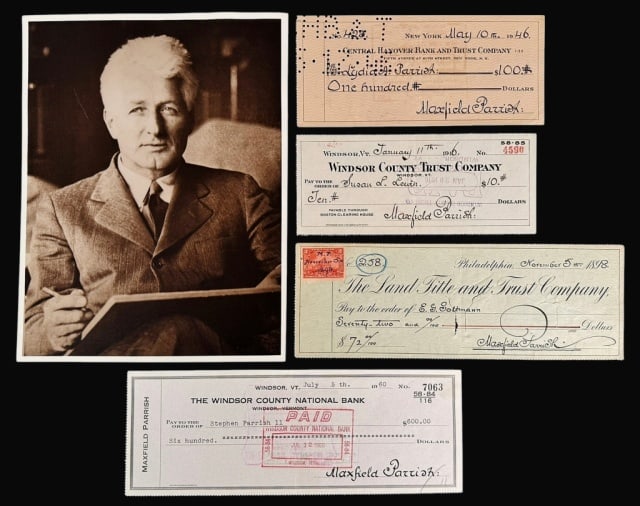 NEW YORK May 10th 1946
CENTRAL HANOVER BANK AND TRUST COMPANY
Lydia A. Parrish $100.#
One hundred.# DOLLARS
Maxfield Parrish.
58-85
WINDSOR, VT. January 11th 1916 No. 4590
WINDSOR COUNTY TRUST COMPANY
WINDSOR, VT.
PAY TO THE
ORDER OF Susan L. Lewin. $10.#
Ten.# DOLLARS
PAYABLE THROUGH
BOSTON CLEARING HOUSE
Maxfield Parrish.
258 Philadelphia, November 5th 1898
The Land Title and Trust Company,
Pay to the order of
Seventy-two and 00/100 Dollars
$72 00/100 Maxfield Parrish.
MAXFIELD PARRISH
WINDSOR, VT. July 5th. 1960 No. 7063
58-84
116
THE WINDSOR COUNTY NATIONAL BANK
WINDSOR, VERMONT
PAY TO THE
ORDER OF Stephen Parrish 11 $600.00
Six hundred. DOLLARS
PAID
WINDSOR COUNTY NATIONAL BANK
58-84
58-84
Maxfield Parrish.